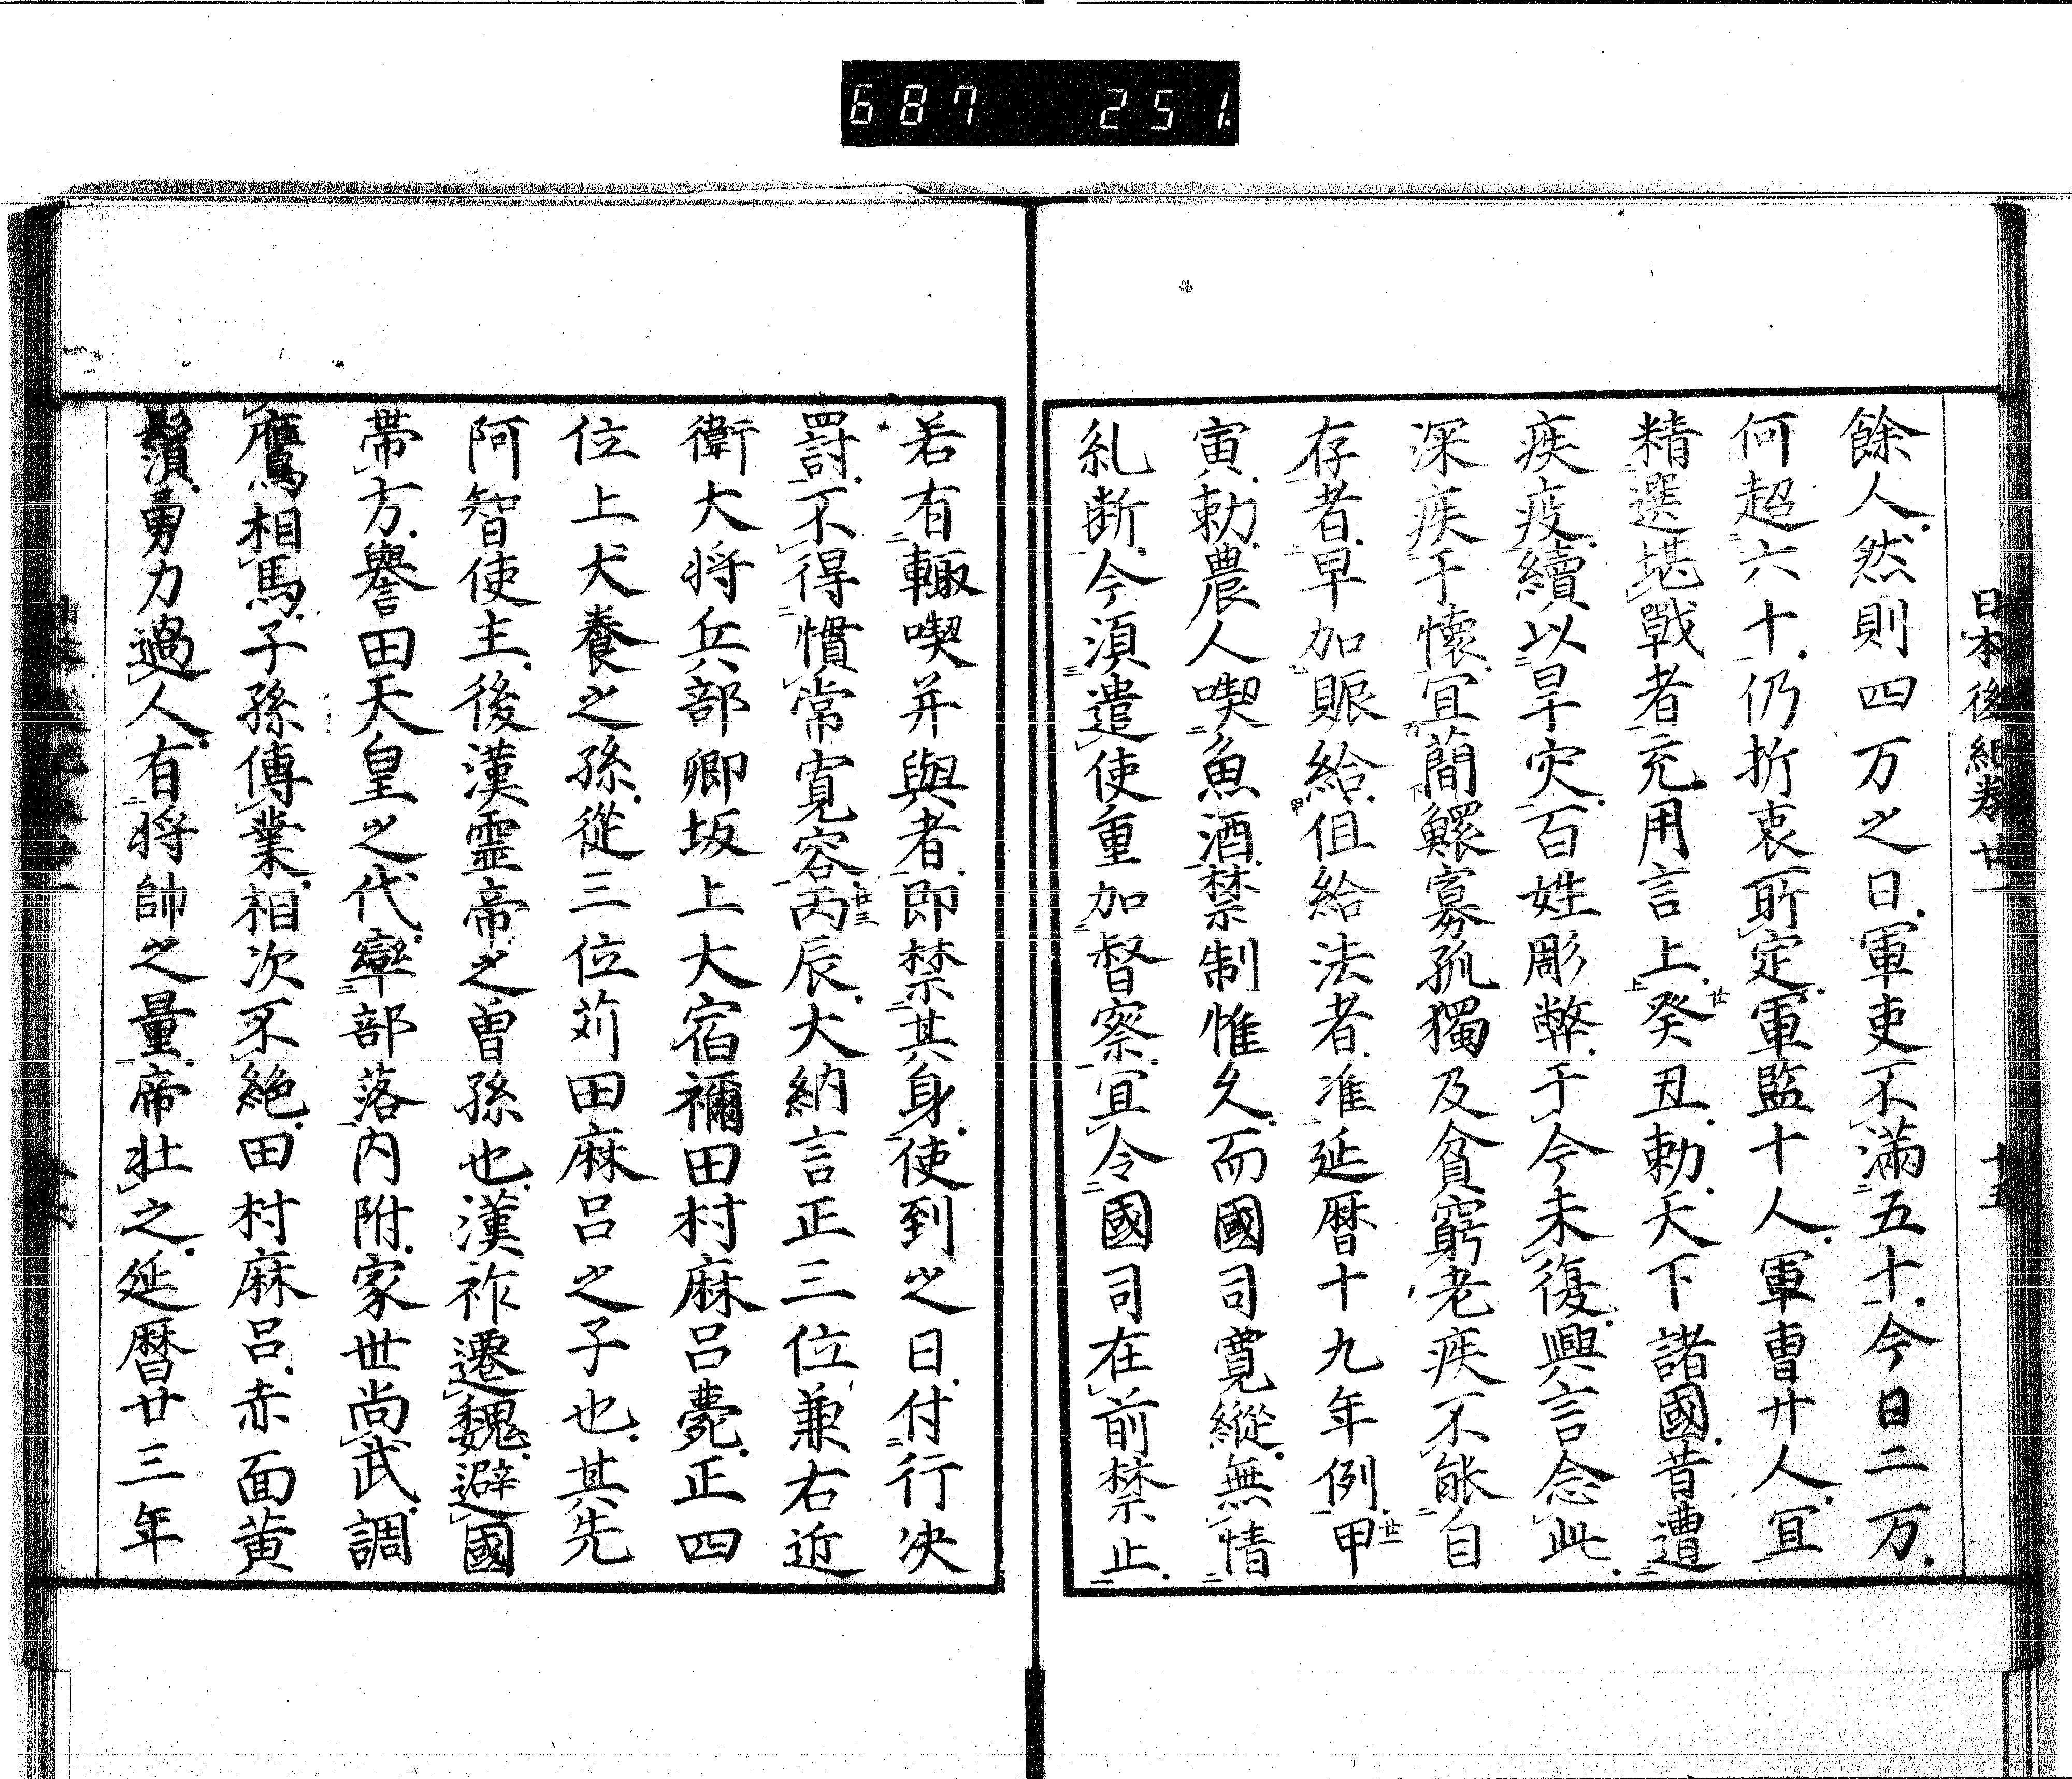 687 251.
日本後紀卷廿一 十五
餘人然則四万之日軍吏不滿五十今日二万
何超六十仍折衷所定軍監十人軍曹廿人宜
精選堪戰者充用言上癸丑勅天下諸國昔遭
疾疫續以旱灾百姓彫弊于今未復興言念此
深疾于懷宜蕳鰥寡孤獨及貧窮老疾不能自
存者早加賑給但給法者准延暦十九年例甲
寅勅農人喫魚酒禁制惟久而國司寬縱無情
糺断今湏遣使重加督察宜令國司在前禁止
若有輙喫并與者即禁其身使到之日付行决
罸不得慣常寛容丙辰大納言正三位兼右近
衛大将兵部卿坂上大宿禰田村麻呂薨正四
位上犬養之孫從三位苅田麻呂之子也其先
阿智使主後漢靈帝之曽孫也漢祚遷魏避國
帶方譽田天皇之代率部落内附家世尚武調
鷹相馬子孫傳業相次不絶田村麻呂赤面黃
鬚勇力過人有将帥之量帝壮之延暦廿三年